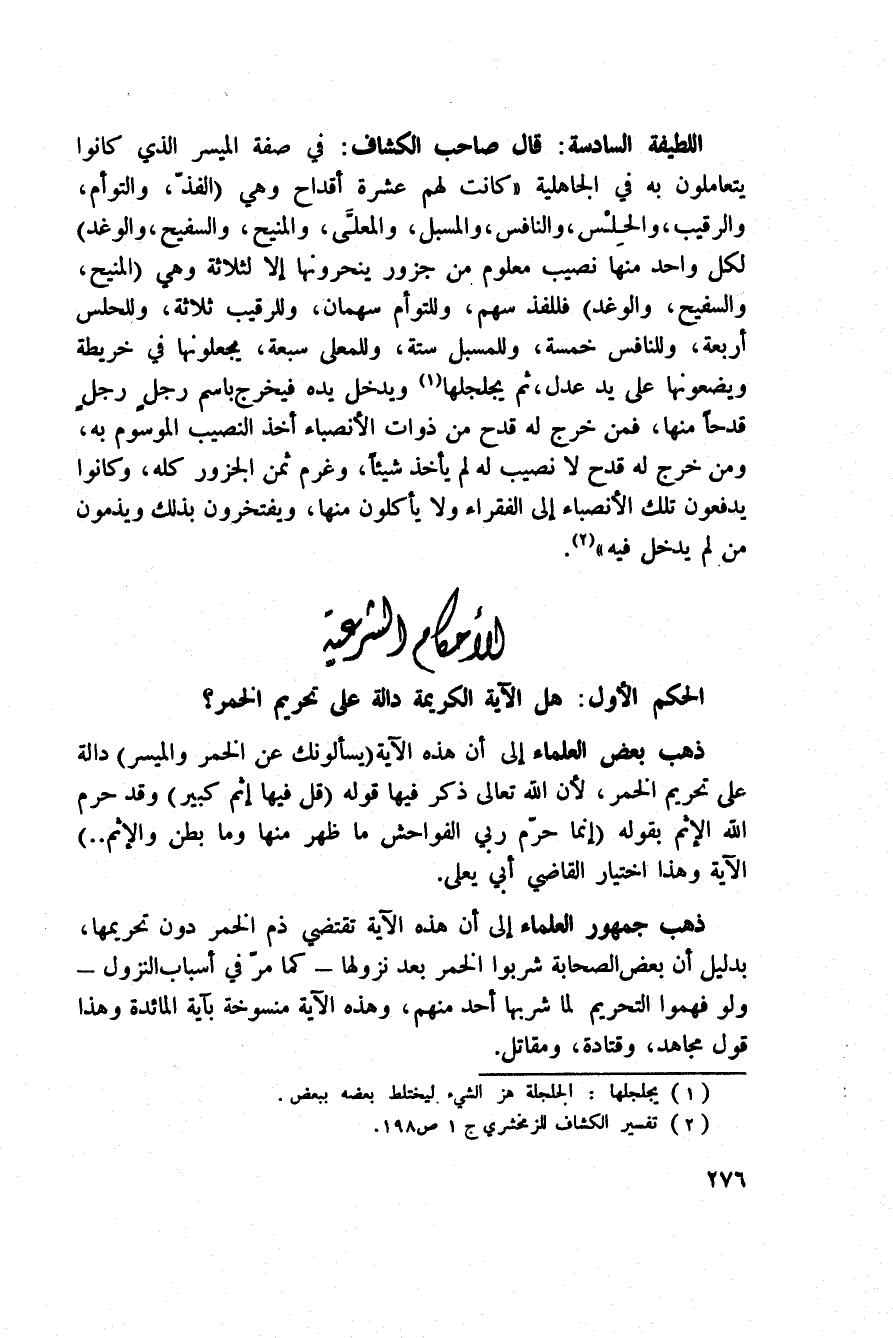 اللطيفة السادسة: قال صاحب الكشاف: في صفة الميسر الذي كانوا
يتعاملون به في الجاهلية «كانت لهم عشرة أقداح وهي (الفذّ، والتوأم،
والرقيب، والحِلْس، والنافس، والمسبل، والمعلَّى، والمنيح، والسفيح، والوغد)
لكل واحد منها نصيب معلوم من جزور ينحرونها إلا لثلاثة وهي (المنيح،
والسفيح، والوغد) فللفذ سهم، وللتوأم سهمان، وللرقيب ثلاثة، وللحلس
أربعة، وللنافس خمسة، وللمسبل ستة، وللمعلى سبعة، يجعلونها في خريطة
ويضعونها على يد عدل، ثم يجلجلها(١) ويدخل يده فيخرج باسم رجلٍ رجلٍ
قدحاً منها، فمن خرج له قدح من ذوات الأنصباء أخذ النصيب الموسوم به،
ومن خرج له قدح لا نصيب له لم يأخذ شيئاً، وغرم ثمن الجزور كله، وكانوا
يدفعون تلك الأنصباء إلى الفقراء ولا يأكلون منها، ويفتخرون بذلك ويذمون
من لم يدخل فيه»(٢).
الأحكام الشرعية
الحكم الأول: هل الآية الكريمة دالة على تحريم الخمر؟
ذهب بعض العلماء إلى أن هذه الآية (يسألونك عن الخمر والميسر) دالة
على تحريم الخمر، لأن الله تعالى ذكر فيها قوله (قل فيها إثم كبير) وقد حرم
الله الإثم بقوله (إنما حرّم ربي الفواحش ما ظهر منها وما بطن والإثم..)
الآية وهذا اختيار القاضي أبي يعلى.
ذهب جمهور العلماء إلى أن هذه الآية تقتضي ذم الخمر دون تحريمها،
بدليل أن بعض الصحابة شربوا الخمر بعد نزولها – كما مرّ في أسباب النزول –
ولو فهموا التحريم لما شربها أحد منهم، وهذه الآية منسوخة بآية المائدة وهذا
قول مجاهد، وقتادة، ومقاتل.
(١) يجلجلها : الجلجلة هز الشيء ليختلط بعضه ببعض.
(٢) تفسير الكشاف للزمخشري ج ١ ص١٩٨.
٢٧٦